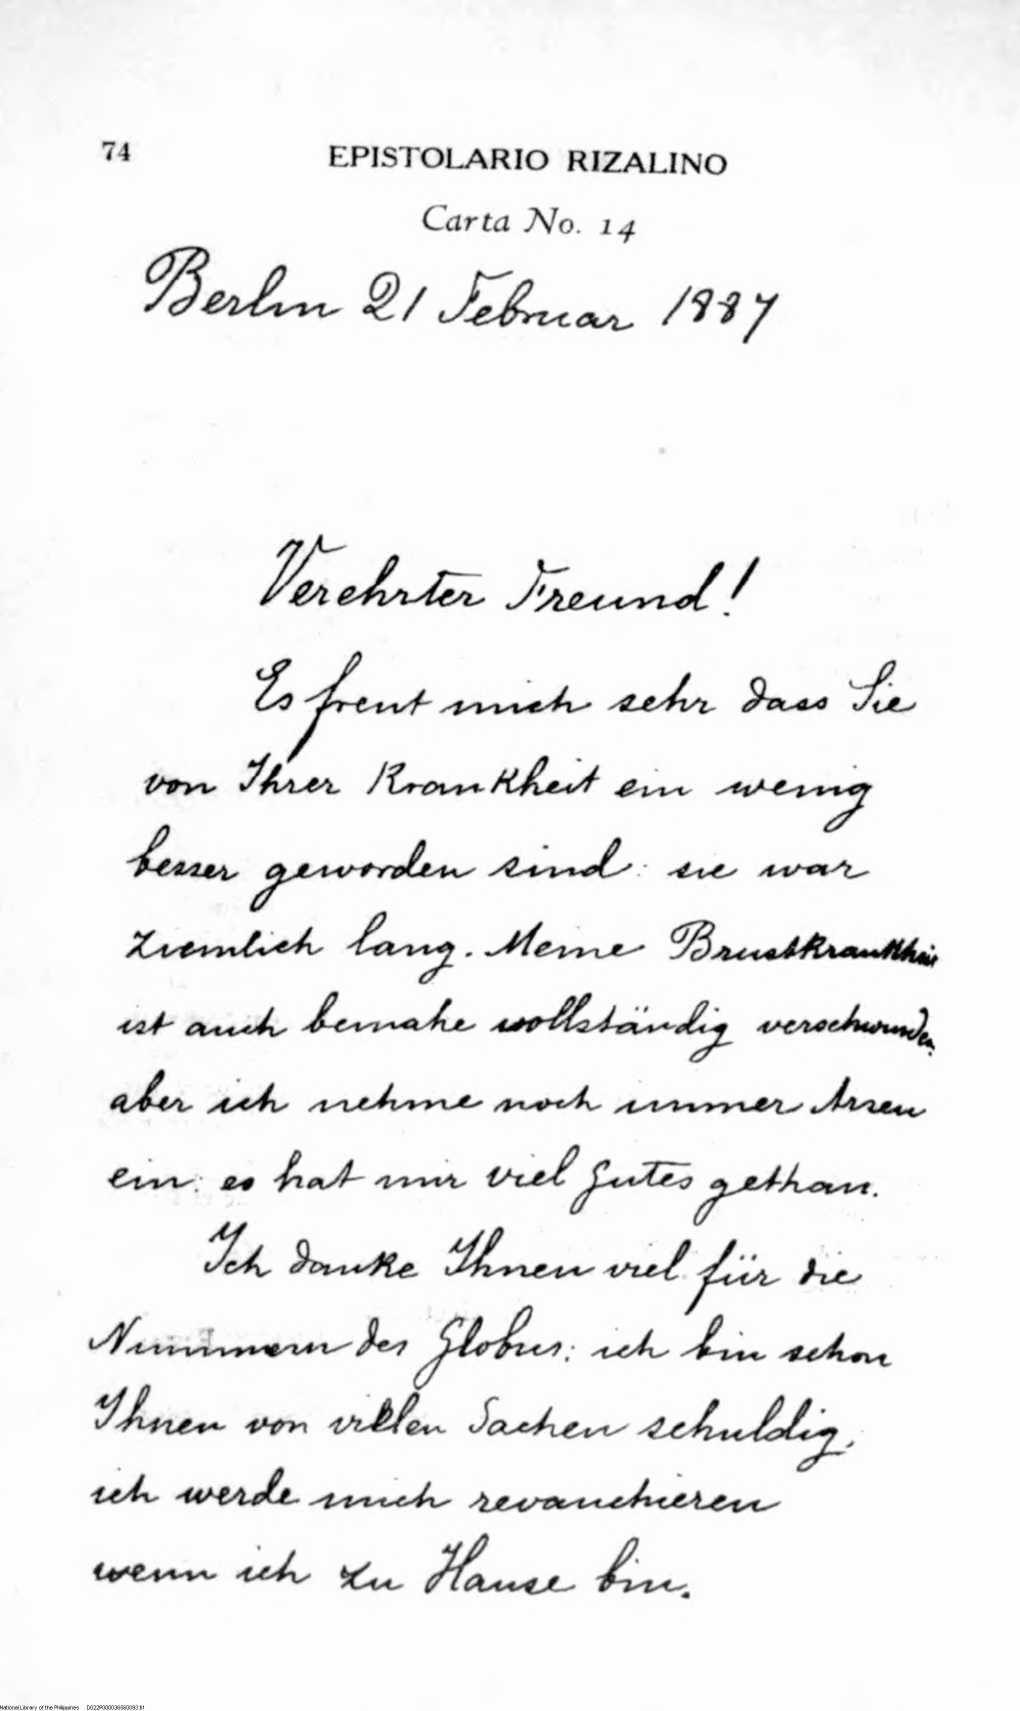 74
EPISTOLARIO RIZALINO
Carta No. 14
Berlin 21 Februar 1887
Verehrter Freund!
Es freut mich sehr dass Sie
von Ihrer Krankheit ein wenig
besser geworden sind: sie war
ziemlich lang. Meine Brustkrankheit
ist auch beinahe wollständig verschwunden.
aber ich nehme noch immer Arsen
ein: es hat mir viel Gutes gethan.
Ich danke Ihnen viel für die
Nummern des Globus: ich bin schon
Ihnen von vielen Sachen schuldig,
ich werde mich revanchieren
wenn ich zu Hause bin.
National Library of the Philippines